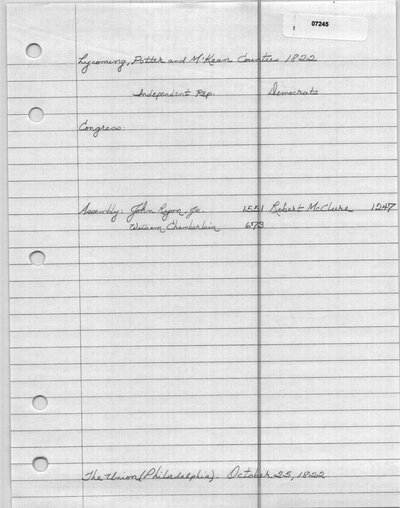 07245
Lycoming, Potter and M'Kean Counties 1822
Independent Rep. Democrats
Congress:
Assembly: John Ryon, Jr. 1551 Robert McClure 1247
William Chamberlain 673
The Union (Philadelphia). October 25, 1822